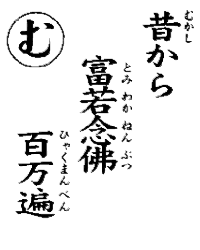 む
昔から
むかし
富若念佛
とみわかねんぶつ
百万遍
ひゃくまんべん